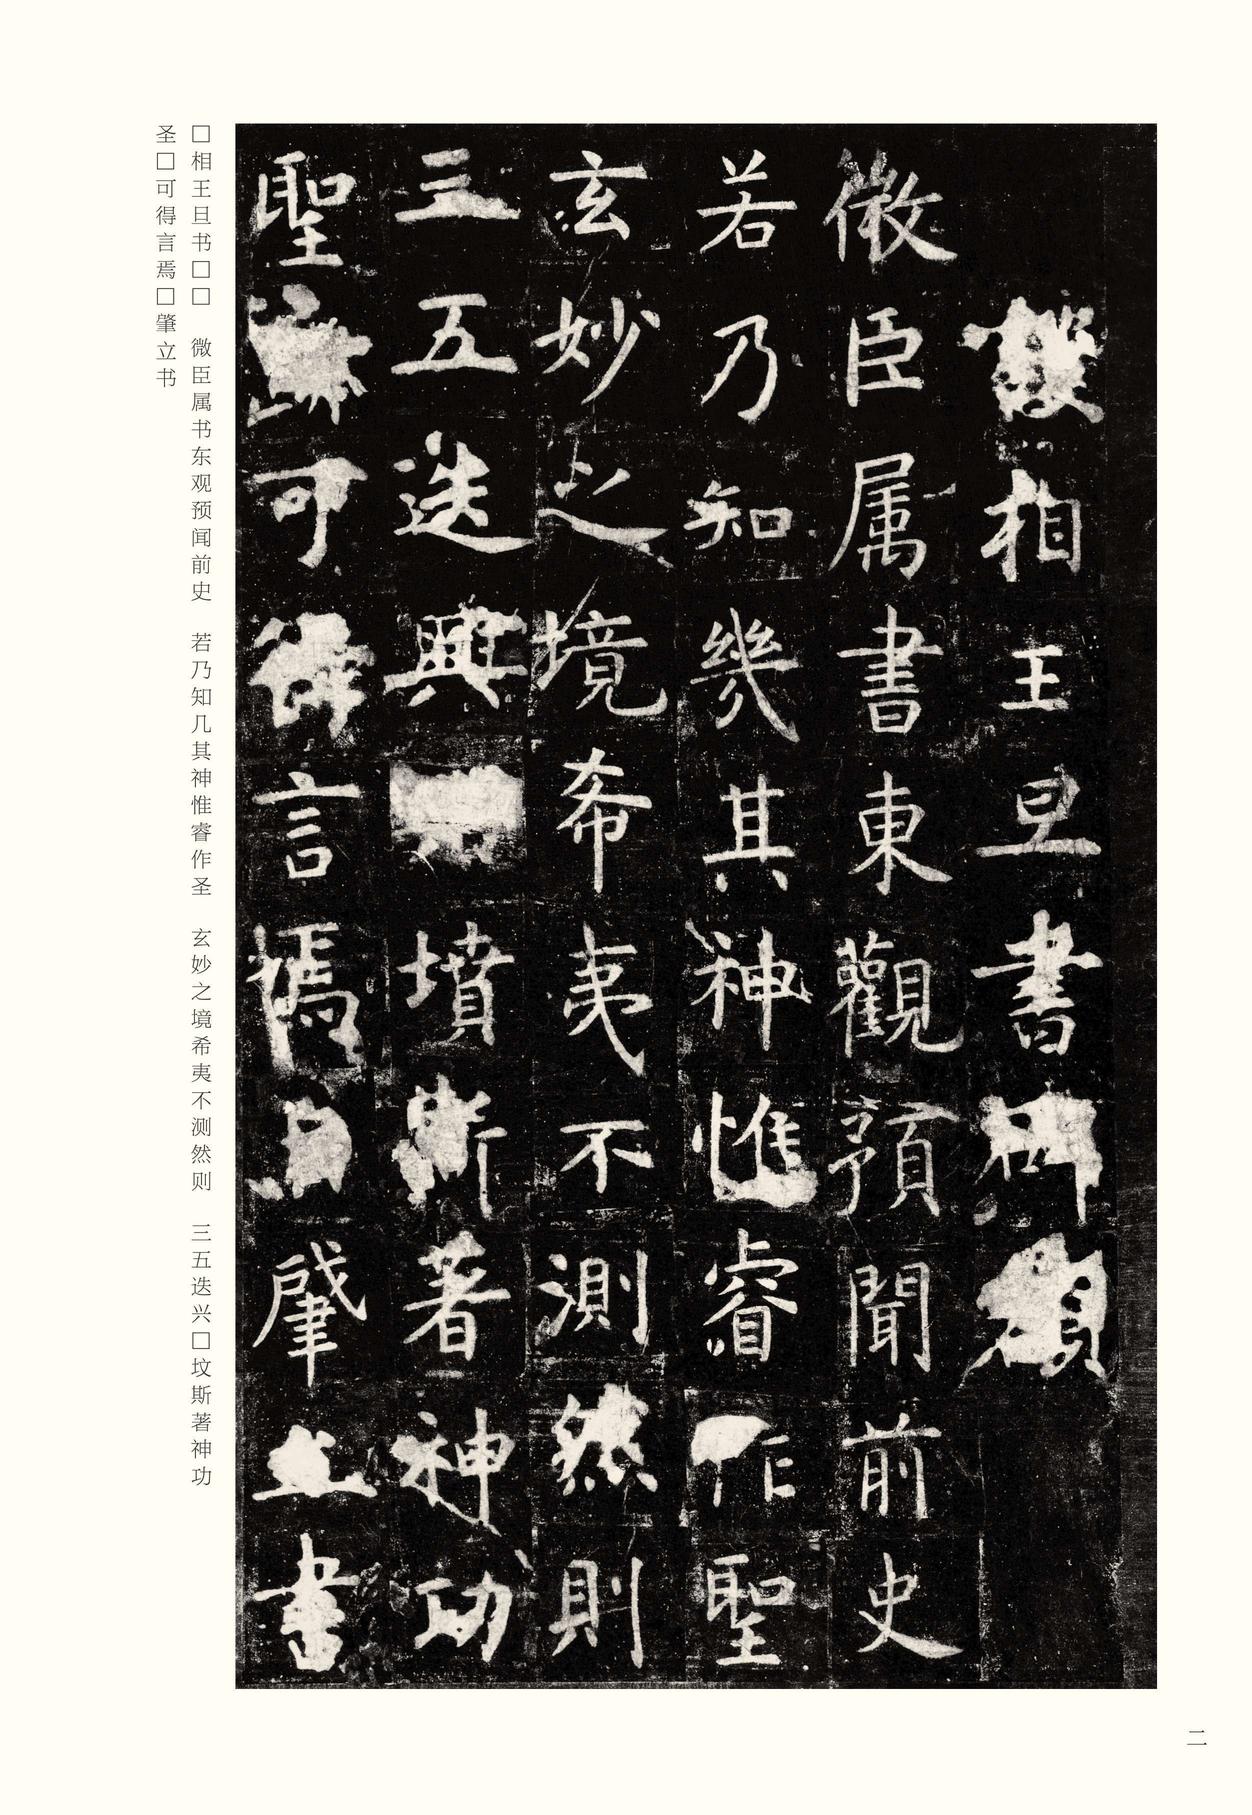 相王旦書碑額
微臣属書東觀預聞前史
若乃知幾其神惟睿作聖
玄妙之境希夷不測然則
三五迭興墳斯著神功
聖可得言焉肇立書
□相王旦书□□　微臣属书东观预闻前史　若乃知几其神惟睿作圣　玄妙之境希夷不测然则　三五迭兴□坟斯著神功
圣□可得言焉□肇立书
二